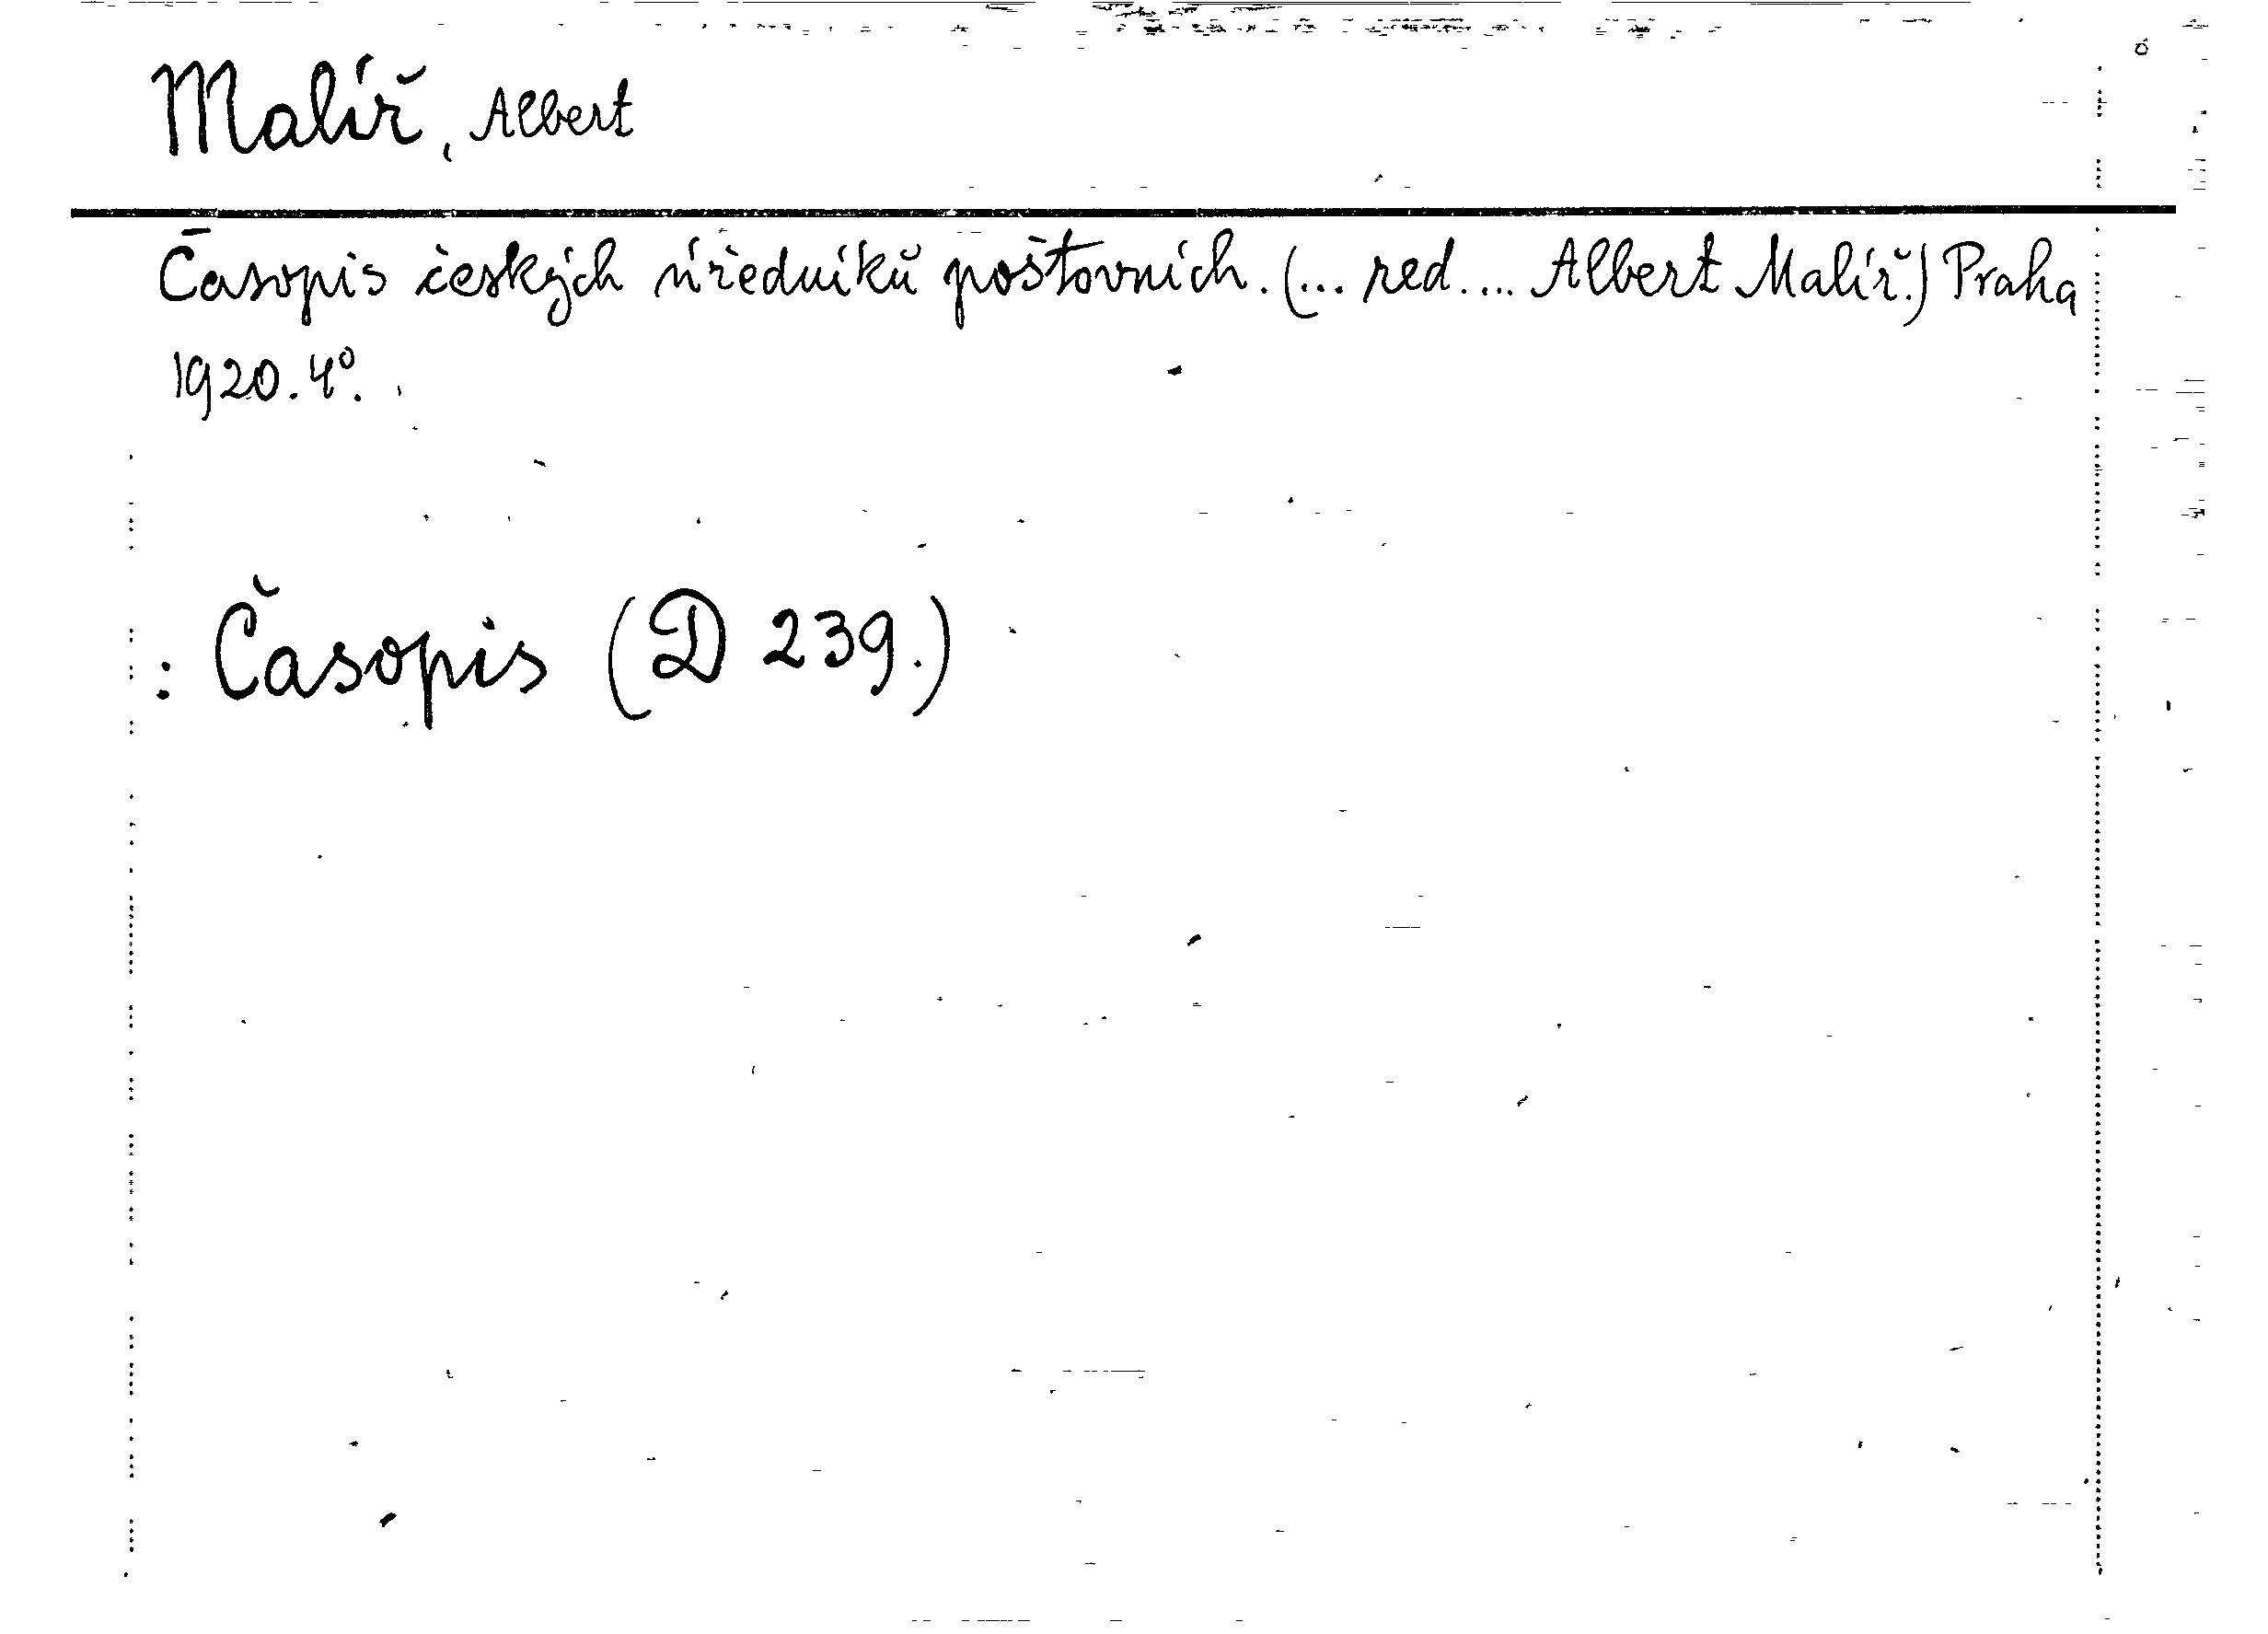 Malíř, Albert
Časopis českých úředníků poštovních. (... red. ... Albert Malíř.) Praha
1920. 4°.
: Časopis (D 239.)